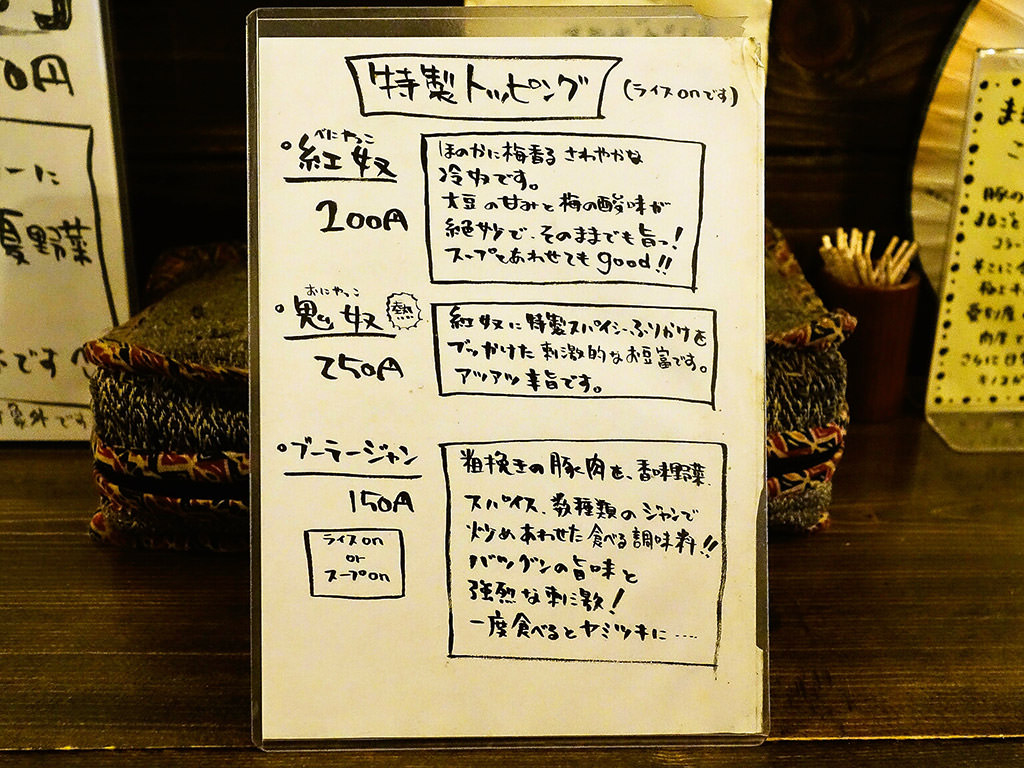 特製トッピング (ライスonです)
べにやっこ
・紅奴
200円
ほのかに梅香る さわやかな
冷奴です。
大豆の甘みと梅の酸味が
絶妙で、そのままでも旨っ!
スープとあわせてもgood!!
おにやっこ
・鬼奴 熱
250円
紅奴に特製スパイシーふりかけを
ブッかけた刺激的なお豆富です。
アツアツ辛旨です。
・ブーテージャン
150円
ライスon
or
スープon
粗挽きの豚肉を、香味野菜、
スパイス、数種類のジャンで
炒めあわせた食べる調味料!!
バツグンの旨味と
強烈な刺激!
一度食べるとヤミツキに‥‥
0円
ーに
夏野菜
です
象外です
豚の
まるごと
コラー